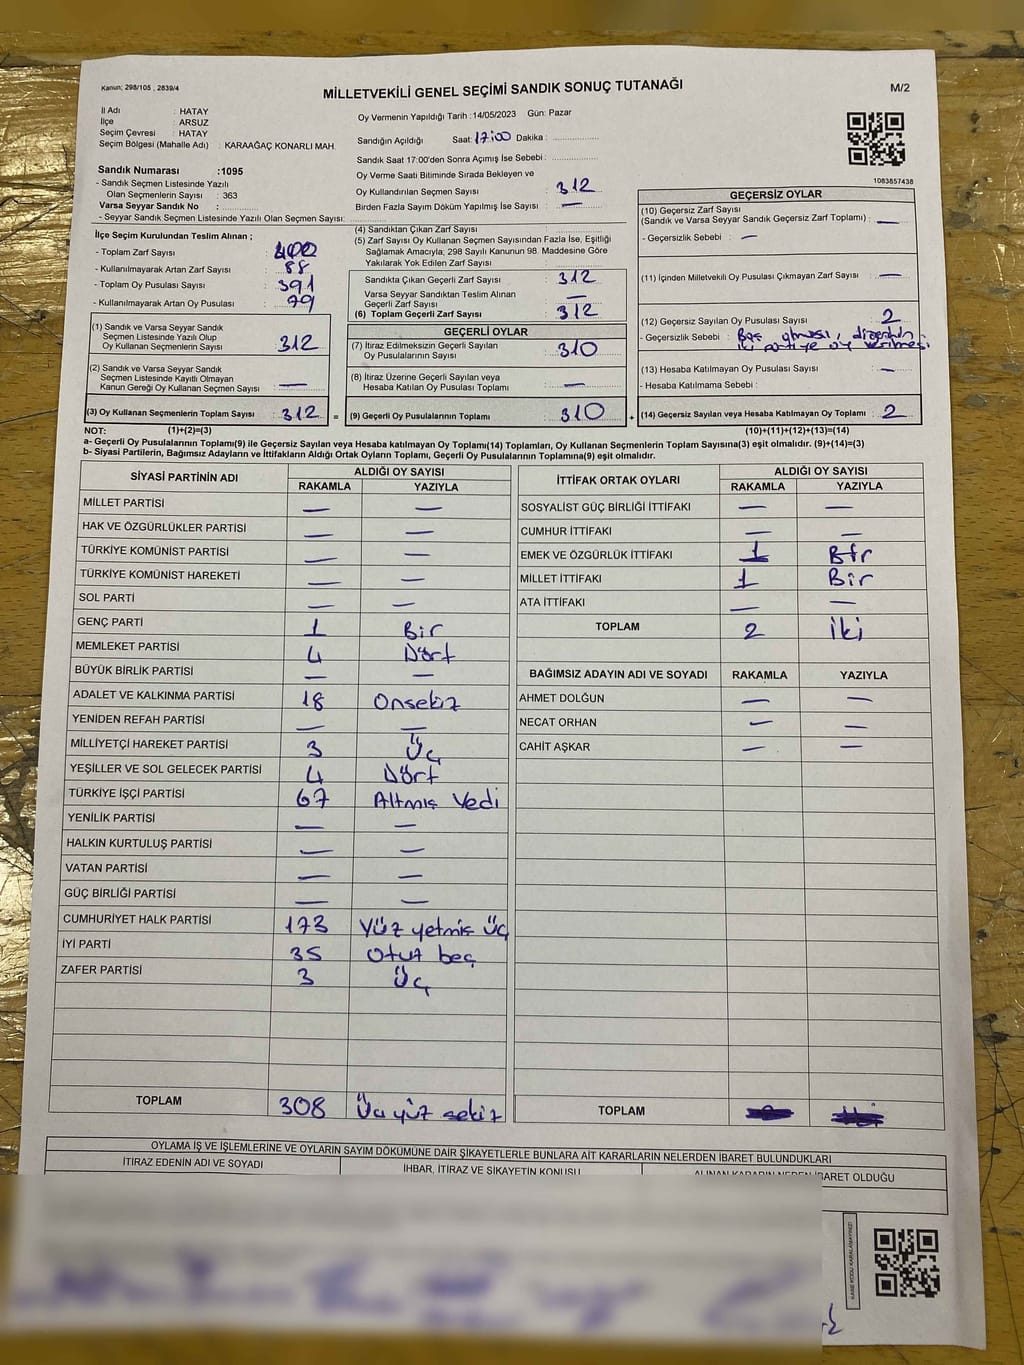 Kanun; 298/105 , 2839/4
MİLLETVEKİLİ GENEL SEÇİMİ SANDIK SONUÇ TUTANAĞI
M/2
İl Adı : HATAY
İlçe : ARSUZ
Seçim Çevresi : HATAY
Seçim Bölgesi (Mahalle Adı) : KARAAĞAÇ KONARLI MAH.
Oy Vermenin Yapıldığı Tarih : 14/05/2023 Gün: Pazar
Sandığın Açıldığı Saat: 17:00 Dakika :
Sandık Saat 17:00'den Sonra Açımış İse Sebebi :
Oy Verme Saati Bitiminde Sırada Bekleyen ve
Oy Kullandırılan Seçmen Sayısı : 312
Birden Fazla Sayım Döküm Yapılmış İse Sayısı : —
1083857438
Sandık Numarası :1095
- Sandık Seçmen Listesinde Yazılı
Olan Seçmenlerin Sayısı : 363
Varsa Seyyar Sandık No :
- Seyyar Sandık Seçmen Listesinde Yazılı Olan Seçmen Sayısı:
İlçe Seçim Kurulundan Teslim Alınan ;
- Toplam Zarf Sayısı : 400
- Kullanılmayarak Artan Zarf Sayısı : 88
- Toplam Oy Pusulası Sayısı : 391
- Kullanılmayarak Artan Oy Pusulası : 79
(1) Sandık ve Varsa Seyyar Sandık
Seçmen Listesinde Yazılı Olup
Oy Kullanan Seçmenlerin Sayısı : 312
(2) Sandık ve Varsa Seyyar Sandık
Seçmen Listesinde Kayıtlı Olmayan
Kanun Gereği Oy Kullanan Seçmen Sayısı : —
(3) Oy Kullanan Seçmenlerin Toplam Sayısı : 312 =
(4) Sandıktan Çıkan Zarf Sayısı :
(5) Zarf Sayısı Oy Kullanan Seçmen Sayısından Fazla İse, Eşitliği
Sağlamak Amacıyla; 298 Sayılı Kanunun 98. Maddesine Göre
Yakılarak Yok Edilen Zarf Sayısı :
Sandıkta Çıkan Geçerli Zarf Sayısı : 312
Varsa Seyyar Sandıktan Teslim Alınan
Geçerli Zarf Sayısı : —
(6) Toplam Geçerli Zarf Sayısı : 312
GEÇERLİ OYLAR
(7) İtiraz Edilmeksizin Geçerli Sayılan
Oy Pusulalarının Sayısı : 310
(8) İtiraz Üzerine Geçerli Sayılan veya
Hesaba Katılan Oy Pusulası Toplamı : —
(9) Geçerli Oy Pusulalarının Toplamı : 310 +
GEÇERSİZ OYLAR
(10) Geçersiz Zarf Sayısı
(Sandık ve Varsa Seyyar Sandık Geçersiz Zarf Toplamı) : —
- Geçersizlik Sebebi : —
(11) İçinden Milletvekili Oy Pusulası Çıkmayan Zarf Sayısı : —
(12) Geçersiz Sayılan Oy Pusulası Sayısı : 2
- Geçersizlik Sebebi : Boş olması, diğerinin
iki partiye oy verilmesi
(13) Hesaba Katılmayan Oy Pusulası Sayısı : —
- Hesaba Katılmama Sebebi :
(14) Geçersiz Sayılan veya Hesaba Katılmayan Oy Toplamı : 2
NOT: (1)+(2)=(3) (10)+(11)+(12)+(13)=(14)
a- Geçerli Oy Pusulalarının Toplamı(9) ile Geçersiz Sayılan veya Hesaba katılmayan Oy Toplamı(14) Toplamları, Oy Kullanan Seçmenlerin Toplam Sayısına(3) eşit olmalıdır. (9)+(14)=(3)
b- Siyasi Partilerin, Bağımsız Adayların ve İttifakların Aldığı Ortak Oyların Toplamı, Geçerli Oy Pusulalarının Toplamına(9) eşit olmalıdır.
SİYASİ PARTİNİN ADI ALDIĞI OY SAYISI
RAKAMLA YAZIYLA
MİLLET PARTİSİ — —
HAK VE ÖZGÜRLÜKLER PARTİSİ — —
TÜRKİYE KOMÜNİST PARTİSİ — —
TÜRKİYE KOMÜNİST HAREKETİ — —
SOL PARTİ — —
GENÇ PARTİ 1 Bir
MEMLEKET PARTİSİ 4 Dört
BÜYÜK BİRLİK PARTİSİ — —
ADALET VE KALKINMA PARTİSİ 18 Onsekiz
YENİDEN REFAH PARTİSİ — —
MİLLİYETÇİ HAREKET PARTİSİ 3 Üç
YEŞİLLER VE SOL GELECEK PARTİSİ 4 Dört
TÜRKİYE İŞÇİ PARTİSİ 67 Altmış Yedi
YENİLİK PARTİSİ — —
HALKIN KURTULUŞ PARTİSİ — —
VATAN PARTİSİ — —
GÜÇ BİRLİĞİ PARTİSİ — —
CUMHURİYET HALK PARTİSİ 173 Yüz yetmiş üç
İYİ PARTİ 35 Otuz beş
ZAFER PARTİSİ 3 Üç
TOPLAM 308 Üç yüz sekiz
İTTİFAK ORTAK OYLARI ALDIĞI OY SAYISI
RAKAMLA YAZIYLA
SOSYALİST GÜÇ BİRLİĞİ İTTİFAKI — —
CUMHUR İTTİFAKI — —
EMEK VE ÖZGÜRLÜK İTTİFAKI 1 Bir
MİLLET İTTİFAKI 1 Bir
ATA İTTİFAKI — —
TOPLAM 2 İki
BAĞIMSIZ ADAYIN ADI VE SOYADI RAKAMLA YAZIYLA
AHMET DOLĞUN — —
NECAT ORHAN — —
CAHİT AŞKAR — —
TOPLAM
OYLAMA İŞ VE İŞLEMLERİNE VE OYLARIN SAYIM DÖKÜMÜNE DAİR ŞİKAYETLERLE BUNLARA AİT KARARLARIN NELERDEN İBARET BULUNDUKLARI
İTİRAZ EDENİN ADI VE SOYADI
İHBAR, İTİRAZ VE ŞİKAYETİN KONUSU
ALINAN KARARIN NEDEN İBARET OLDUĞU
KARE KODU KARALAMAYINIZ!